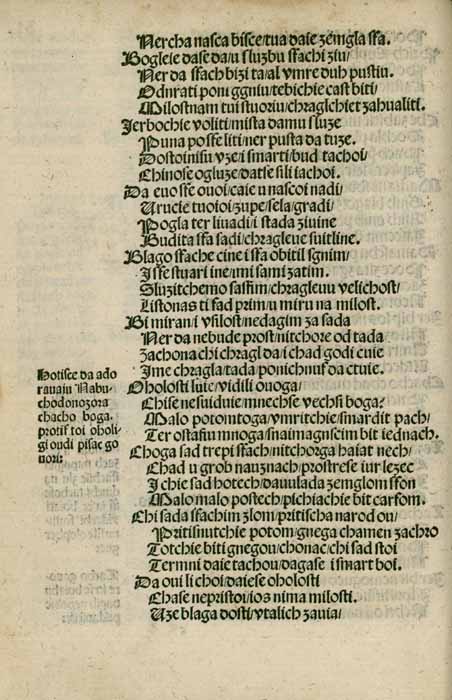 Nercha nasca bisce/tua daie zemgla ssa.
Bogleie dase da/u sluzbu ssachi ziu/
Ner da ssach bizi ta/al vmre duh pustiu.
Odnrati poni ggniu/tebichie cast biti/
Milostnam tui stuoriu/chraglchiet zahualiti.
Jerbochie voliti/mista damu sluze
Puna posse liti/ner pusta da tuze.
Dostoinisu vze/i smarti/bud tachoi/
Chinose ogluze/datse sili iachoi.
Da euo sse ouoi/caie u nascoi nadi/
Urucie tuoioi/zupe/sela/gradi/
Pogla ter liuadi/i stada ziuine
Budita ssa sadi/chragleue suitline.
Blago ssache cine i ssa obitil sgnim/
Jsse stuari ine/mi sami zatim.
Sluzitchemo sassim/chragleuu velichost/
Listonas ti sad prim/u miru na milost.
Bi miran/i vsilost/nedagim za sada
Ner da nebude prost/nitchore od tada
Zachona chi chragl da/i chad godi cuie
Jme chragla/tada ponichnuf da ctuie.
Oholosti luie/vidili ouoga/
Chise nesuiduie/mnechse vechsi boga?
Malo potomtoga/vmritchie/smardit pach/
Ter ostasiu mnoga/snaimagnscim bit iednach.
Choga sad trepi ssach/nitchorga haiat nech/
Chad u grob nauznach/prostrese iur lezec
J chie sad hotech/dauulada zemglom ssson
Malo malo postech/pichiachie bit carfom.
Chi sada ssachim zlom/pritischa narod ou/
Pritisnutchie potom/gnega chamen zachro
Totchie biti gnegou/chonac/chi sad stoi
Termni daie tachou/dagase i smart boi.
Da oui li choi/daiese oholosti
Chase nepristoi/ios nima milosti.
Uze blaga dosti/vtalich zauia/
Hotisce da ado
rauaiu Nabu
chodonozora
chacho boga.
protif toi oholi
gi oudi pisac go
uori: